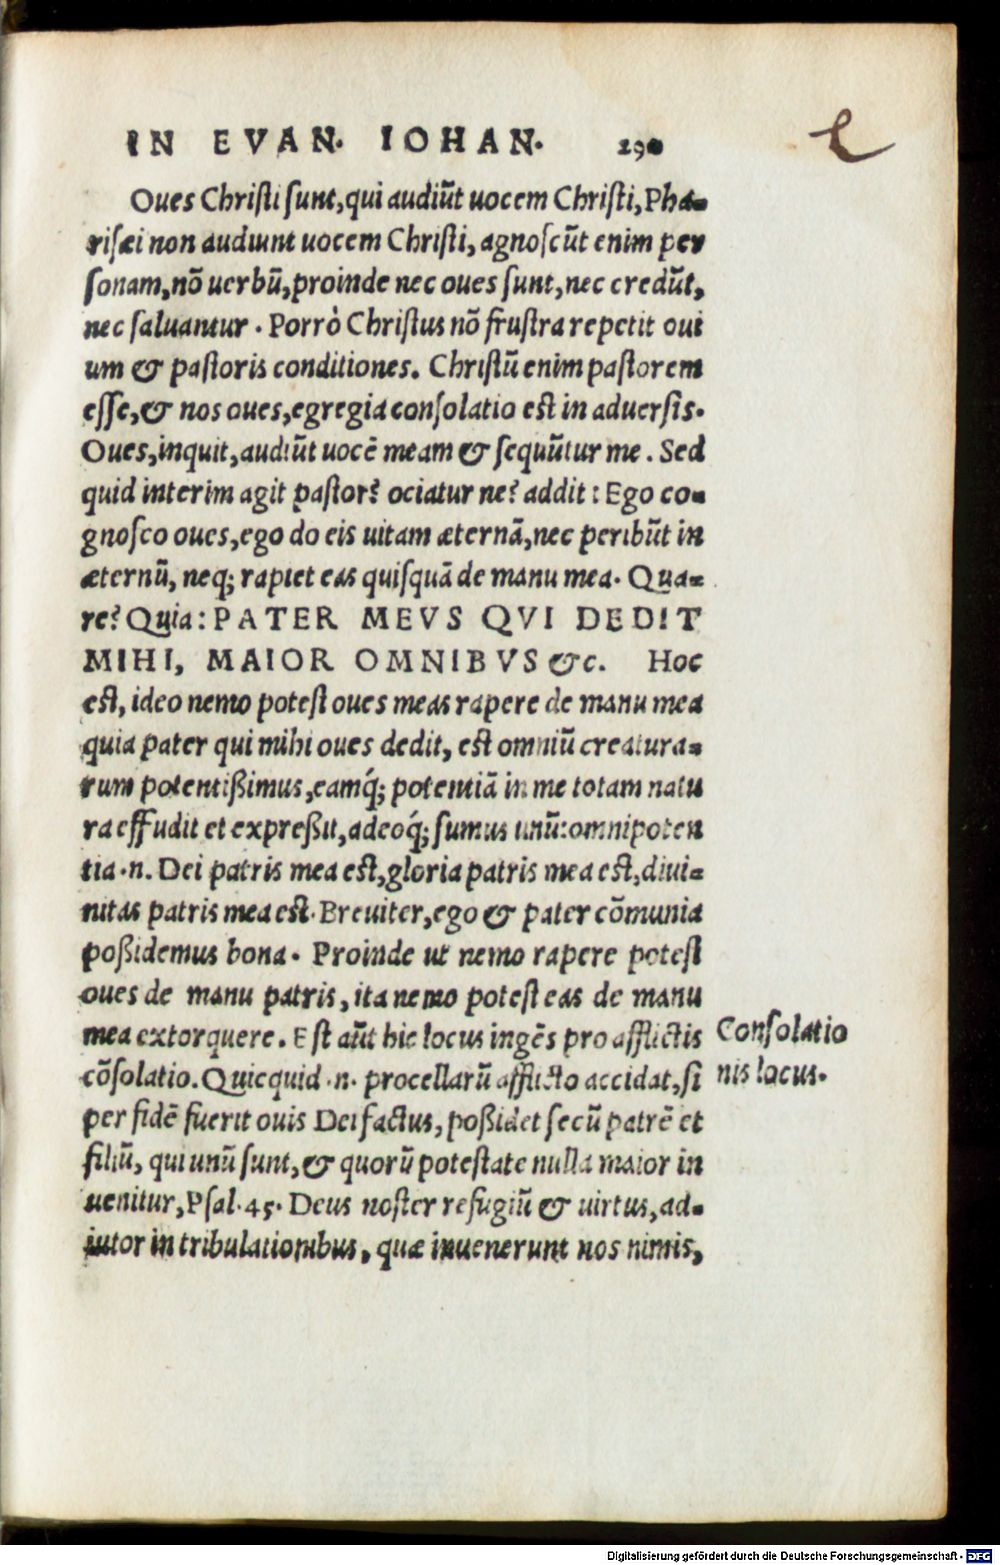 IN EVAN. IOHAN. 290
Oues Christi sunt, qui audiũt uocem Christi, Pha-
risæi non audiunt uocem Christi, agnoscũt enim per
sonam, nõ uerbũ, proinde nec oues sunt, nec credũt,
nec saluantur. Porrò Christus nõ frustra repetit oui
um & pastoris conditiones. Christũ enim pastorem
esse, & nos oues, egregia consolatio est in aduersis.
Oues, inquit, audiũt uocẽ meam & sequũtur me. Sed
quid interim agit pastor? ociatur ne? addit: Ego co-
gnosco oues, ego do eis uitam æternã, nec peribũt in
æternũ, neq; rapiet eas quisquã de manu mea. Qua-
re? Quia: PATER MEVS QVI DEDIT
MIHI, MAIOR OMNIBVS &c. Hoc
est, ideo nemo potest oues meas rapere de manu mea
quia pater qui mihi oues dedit, est omniũ creatura-
rum potentißimus, eamq́; potentiã in me totam natu
ra effudit et expreßit, adeoq́; sumus unũ: omnipoten
tia .n. Dei patris mea est, gloria patris mea est, diui-
nitas patris mea est. Breuiter, ego & pater cõmunia
poßidemus bona. Proinde ut nemo rapere potest
oues de manu patris, ita nemo potest eas de manu
mea extorquere. Est aũt hic locus ingẽs pro afflictis
cõsolatio. Quicquid .n. procellarũ afflicto accidat, si
per fidẽ fuerit ouis Dei factus, poßidet secũ patrẽ et
filiũ, qui unũ sunt, & quorũ potestate nulla maior in
uenitur, Psal. 45. Deus noster refugiũ & uirtus, ad-
iutor in tribulationibus, quæ inuenerunt nos nimis,
Consolatio
nis locus.
Digitalisierung gefördert durch die Deutsche Forschungsgemeinschaft - DFG